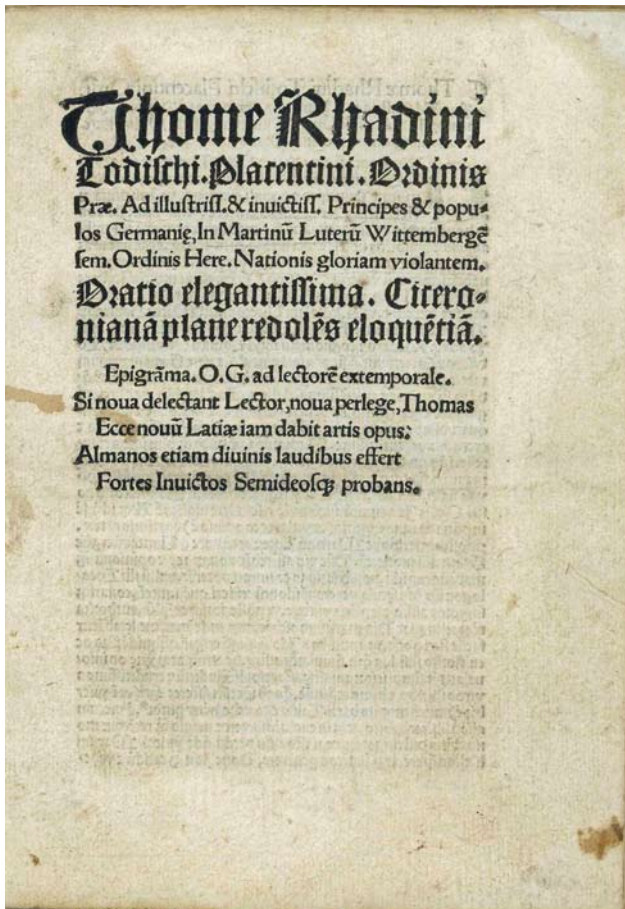 Thome Rhadini
Todischi. Placentini. Ordinis
Præ. Ad illustriss. & inuictiss. Principes & popu-
los Germanię, In Martinū Luterū Wittembergē
sem. Ordinis Here. Nationis gloriam violantem.
Oratio elegantissima. Cicero-
nianā plane redolēs eloquētiā.
Epigrāma. O. G. ad lectorē extemporale.
Si noua delectant Lector, noua perlege, Thomas
Ecce nouū Latiæ iam dabit artis opus:
Almanos etiam diuinis laudibus effert
Fortes Inuictos Semideosqꝫ probans.